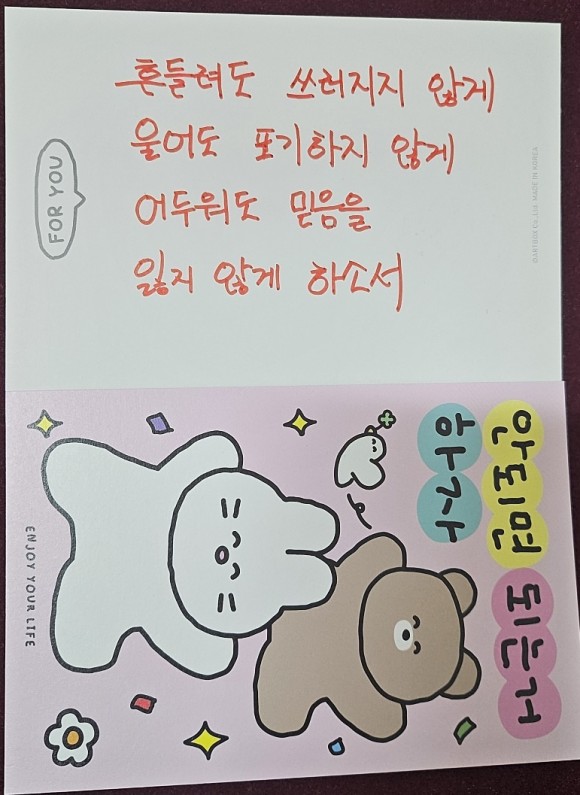 흔들려도 쓰러지지 않게
울어도 포기하지 않게
어두워도 믿음을
잃지 않게 하소서
FOR YOU
©ARTBOX Co., Ltd. MADE IN KOREA
안되면 되는거
하자
ENJOY YOUR LIFE